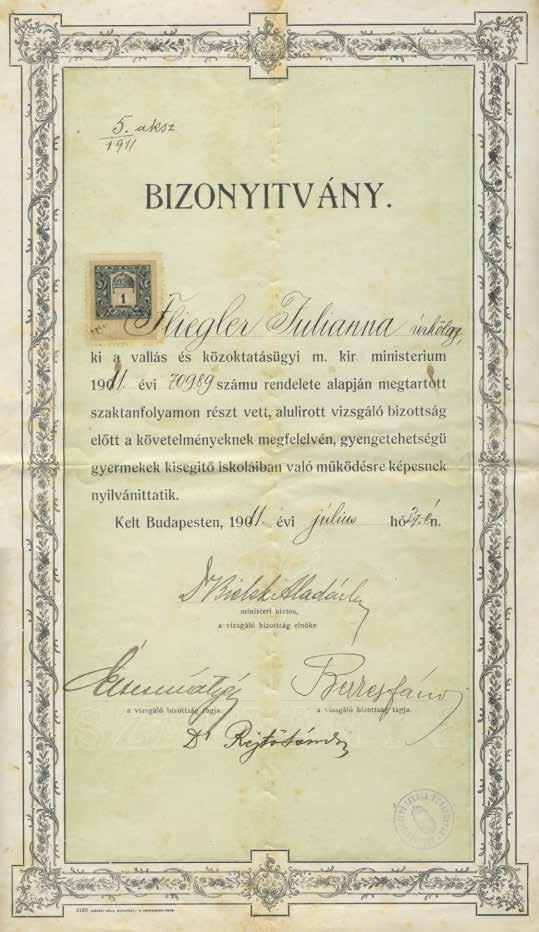 5. aksz
1911
BIZONYITVÁNY.
1
Fliegler Julianna úrhölgy,
ki a vallás és közoktatásügyi m. kir. ministerium
1911 évi 70989 számu rendelete alapján megtartott
szaktanfolyamon részt vett, alulirott vizsgáló bizottság
előtt a követelményeknek megfelelvén, gyengetehetségü
gyermekek kisegitő iskoláiban való működésre képesnek
nyilvánittatik.
Kelt Budapesten, 1911. évi július hó én.
Dr Bielski Aladár
ministeri biztos,
a vizsgáló bizottság elnöke
Berkes János
a vizsgáló bizottság tagja.
a vizsgáló bizottság tagja.
Dr Rejtő Sándor